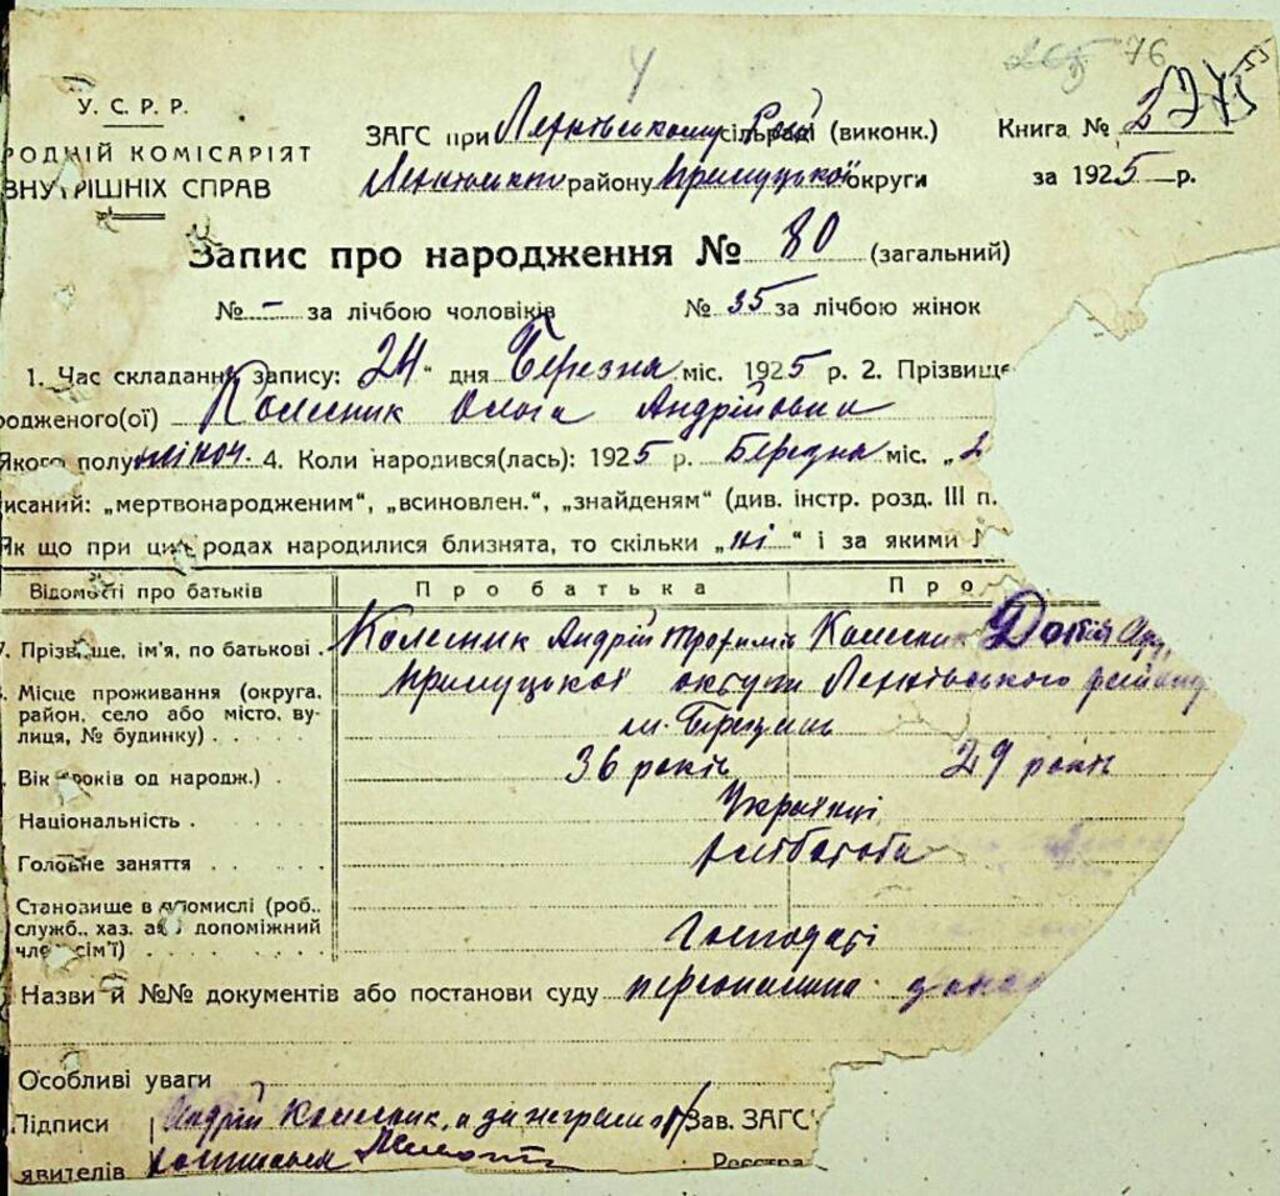 4
76
У. С. Р. Р.
РОДНІЙ КОМІСАРІЯТ
ВНУТРІШНІХ СПРАВ
ЗАГС при сільраді (виконк.)
району Прилуцької округи
Книга № 2
за 1925 р.
Запис про народження № 80 (загальний)
№ – за лічбою чоловіків № 35 за лічбою жінок
1. Час складання запису: 24 " дня Березня міс. 1925 р. 2. Прізвище
родженого(ої) Колесник Ольга Андрійовна
Якого полу жіноч. 4. Коли народився(лась): 1925 р. Березня міс. „2
исаний: „мертвонародженим", „всиновлен.", „знайденям" (див. інстр. розд. III п.
Як що при цих родах народилися близнята, то скільки „ні" і за якими
Відомості про батьків Про батька Про
7. Прізвище, ім'я, по батькові . Колесник Андрій Трофимів Колесник
Місце проживання (округа, Прилуцької округи району
район, село або місто, ву-
лиця, № будинку) . . . . . м. Березань
Вік (років од народж.) . 36 років 29 років
Національність . Українці
Головне заняття . . . . хліборобя
Становище в промислі (роб.,
служб., хаз. або допоміжний
член сім'ї) . . . . . . Господарі
Назви й №№ документів або постанови суду персональна
Особливі уваги
Підписи Андрій Колесник, а за неграмот Зав. ЗАГС
явителів Реєстра